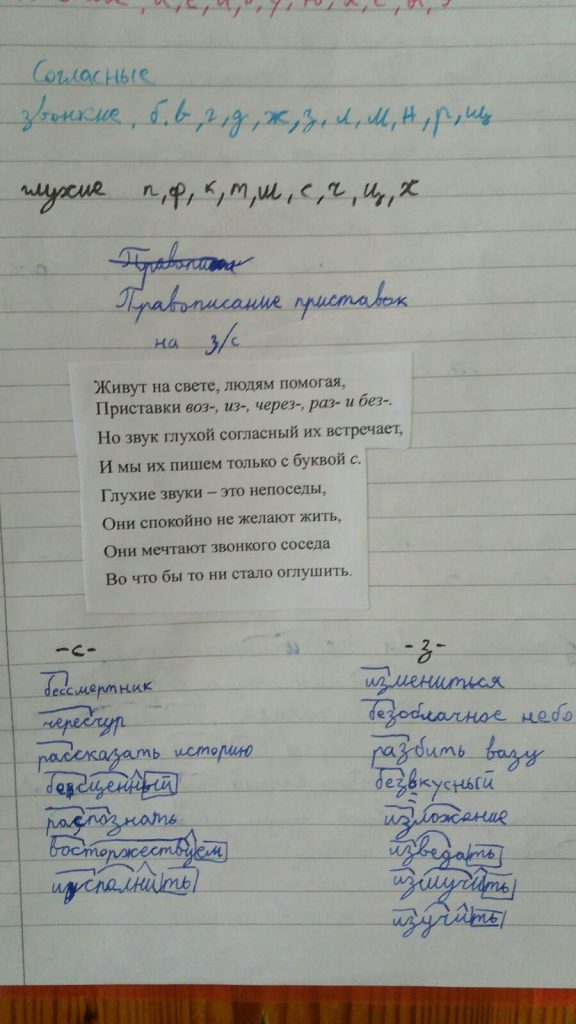 Согласные
звонкие, б, в, г, д, ж, з, л, м, н, р, щ
глухие п, ф, к, т, ш, с, ч, ц, х
Правописание приставок
на з/с
Живут на свете, людям помогая,
Приставки воз-, из-, через-, раз- и без-.
Но звук глухой согласный их встречает,
И мы их пишем только с буквой с.
Глухие звуки – это непоседы,
Они спокойно не желают жить,
Они мечтают звонкого соседа
Во что бы то ни стало оглушить.
-с-
бессмертник
чересчур
рассказать историю
распознать
восторжествуем
-з-
измениться
безоблачное небо
разбить вазу
безвкусный
изложение
изведать
измучить
изучить